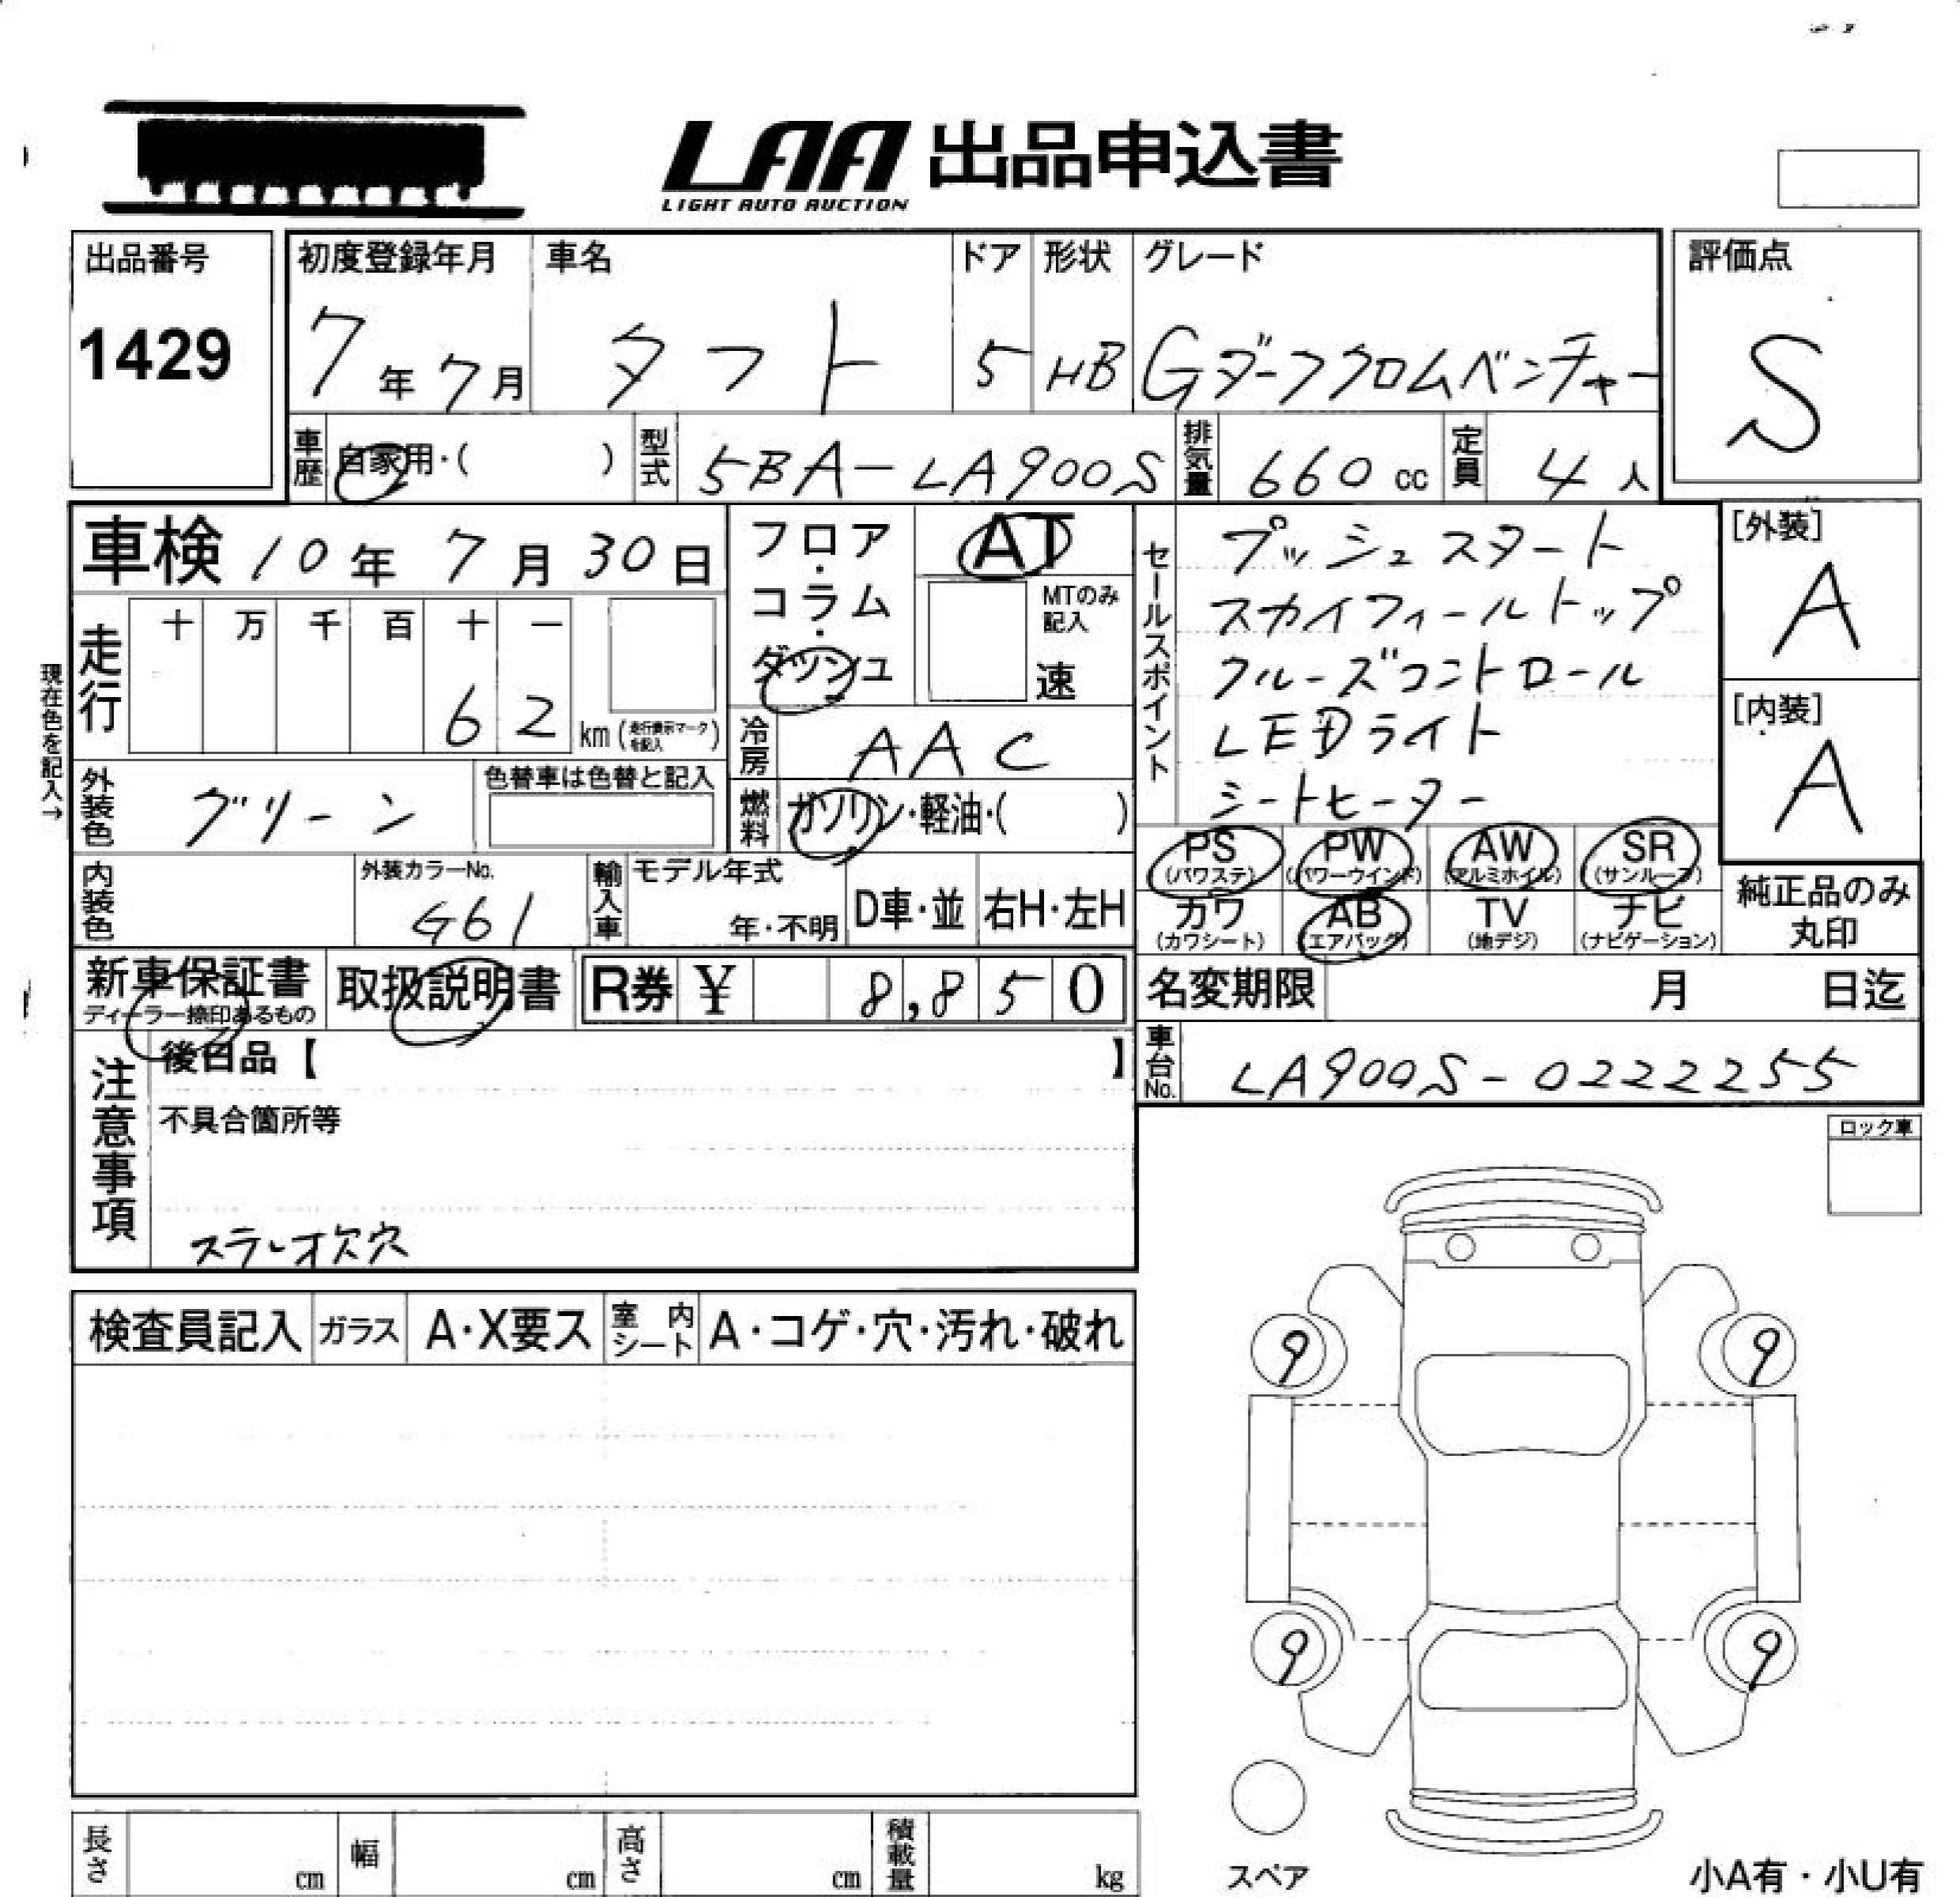 LAA 出品申込書
LIGHT AUTO AUCTION
出品番号 1429
初度登録年月 7年7月
車名 タフト
ドア 5
形状 HB
グレード Gダーククロムベンチャー
評価点 S
車歴 自家用・( )
型式 5BA-LA900S
排気量 660 cc
定員 4人
車検 10年 7月 30日
フロア・コラム・ダッシュ
AT
MTのみ記入
速
セールスポイント
プッシュスタート
スカイフィールトップ
クルーズコントロール
LEDライト
シートヒーター
[外装] A
[内装] A
走行 十 万 千 百 十 一
6 2 km (走行表示マークを記入)
現在色を記入→
冷房 AAC
外装色 グリーン
色替車は色替と記入
燃料 ガソリン・軽油・( )
PS (パワステ) PW (パワーウインド) AW (アルミホイル) SR (サンルーフ)
カワ (カワシート) AB (エアバッグ) TV (地デジ) ナビ (ナビゲーション)
純正品のみ丸印
内装色
外装カラーNo. G61
輸入車 モデル年式 年・不明 D車・並 右H・左H
新車保証書
ディーラー捺印あるもの
取扱説明書
R券 ¥ 8,850
名変期限 月 日迄
車台No. LA900S-0222255
注意事項
後日品【 】
不具合箇所等
ステレオ欠穴
ロック車
検査員記入 ガラス A・X要ス 室内シート A・コゲ・穴・汚れ・破れ
9 9
9 9
スペア
小A有・小U有
長さ cm 幅 cm 高さ cm 積載量 kg